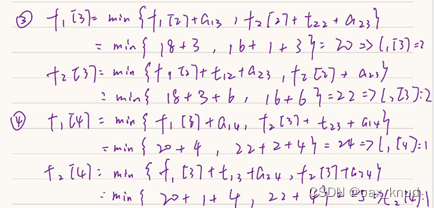 ③ f₁[3] = min {f₁[2]+a₁₃ , f₂[2]+t₂₂+a₁₃}
= min{ 18+3 , 16+1+3} = 20 => l₁[3]=2
f₂[3] = min {f₁[2]+t₁₂+a₂₃ , f₂[2]+a₂₃}
= min{ 18+3+6 , 16+6} = 22 => l₂[3]:2
④ f₁[4] = min { f₁[3]+a₁₄ , f₂[3]+t₂₃+a₁₄}
= min{ 20+4 , 22+2+4} = 24 => l₁[4]:1
f₂[4] = min { f₁[3]+t₁₃+a₂₄ , f₂[3]+a₂₄}
= min{ 20+1+4 , 22+4} l₂[4]:1